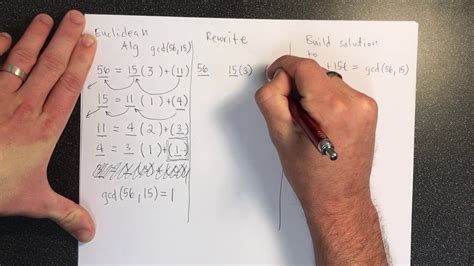 Euclidean
Alg gcd(56,15)
56 = 15(3)+(11)
15 = 11(1)+(4)
11 = 4(2)+(3)
4 = 3(1)+(1)
gcd(56,15)=1
Rewrite
56 15(3)
Build solution
to
+15t = gcd(56,15)